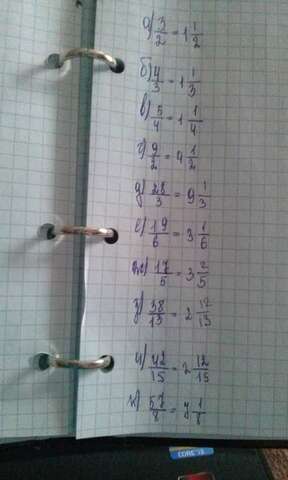 а) 3/2 = 1 1/2
б) 4/3 = 1 1/3
в) 5/4 = 1 1/4
г) 9/2 = 4 1/2
д) 28/3 = 9 1/3
е) 19/6 = 3 1/6
ж) 17/5 = 3 2/5
з) 38/13 = 2 12/13
и) 42/15 = 2 12/15
к) 57/8 = 7 1/8
CORE i3